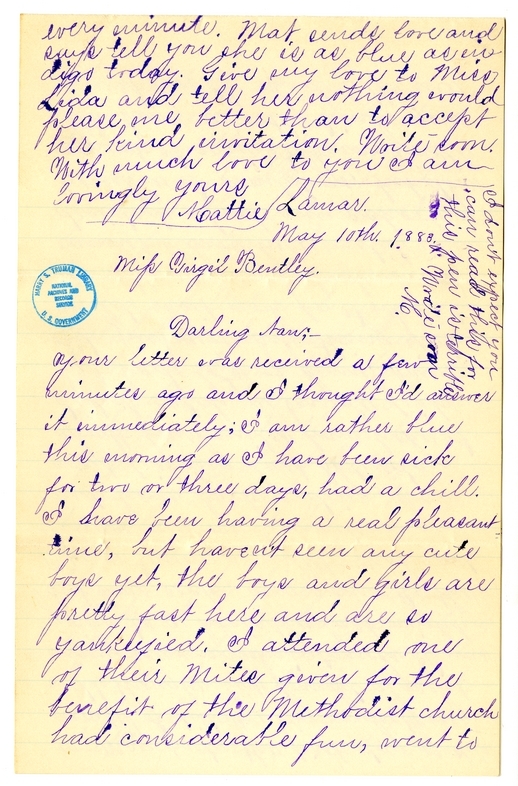 every minute. Mat sends love and
says tell you she is as blue as in
digo today. Give my love to Miss
Lida and tell her nothing would
please me better than to accept
her kind invitation. Write soon.
With much love to you I am
lovingly yours
Mattie Lamar.
I don't expect you
can read this for
this pen is terrible
Write soon
M.
May 10th. 1883.
Miss Virgil Bentley.
HARRY S. TRUMAN LIBRARY
NATIONAL
ARCHIVES AND
RECORDS
SERVICE
U.S. GOVERNMENT
Darling Nan;—
your letter was received a few
minutes ago and I thought I'd answer
it immediately; I am rather blue
this morning as I have been sick
for two or three days, had a chill.
I have been having a real pleasant
time, but havent seen any cute
boys yet, the boys and girls are
pretty fast here and are so
yankeyied. I attended one
of their Mites given for the
benefit of the Methodist church
had considerable fun, went to